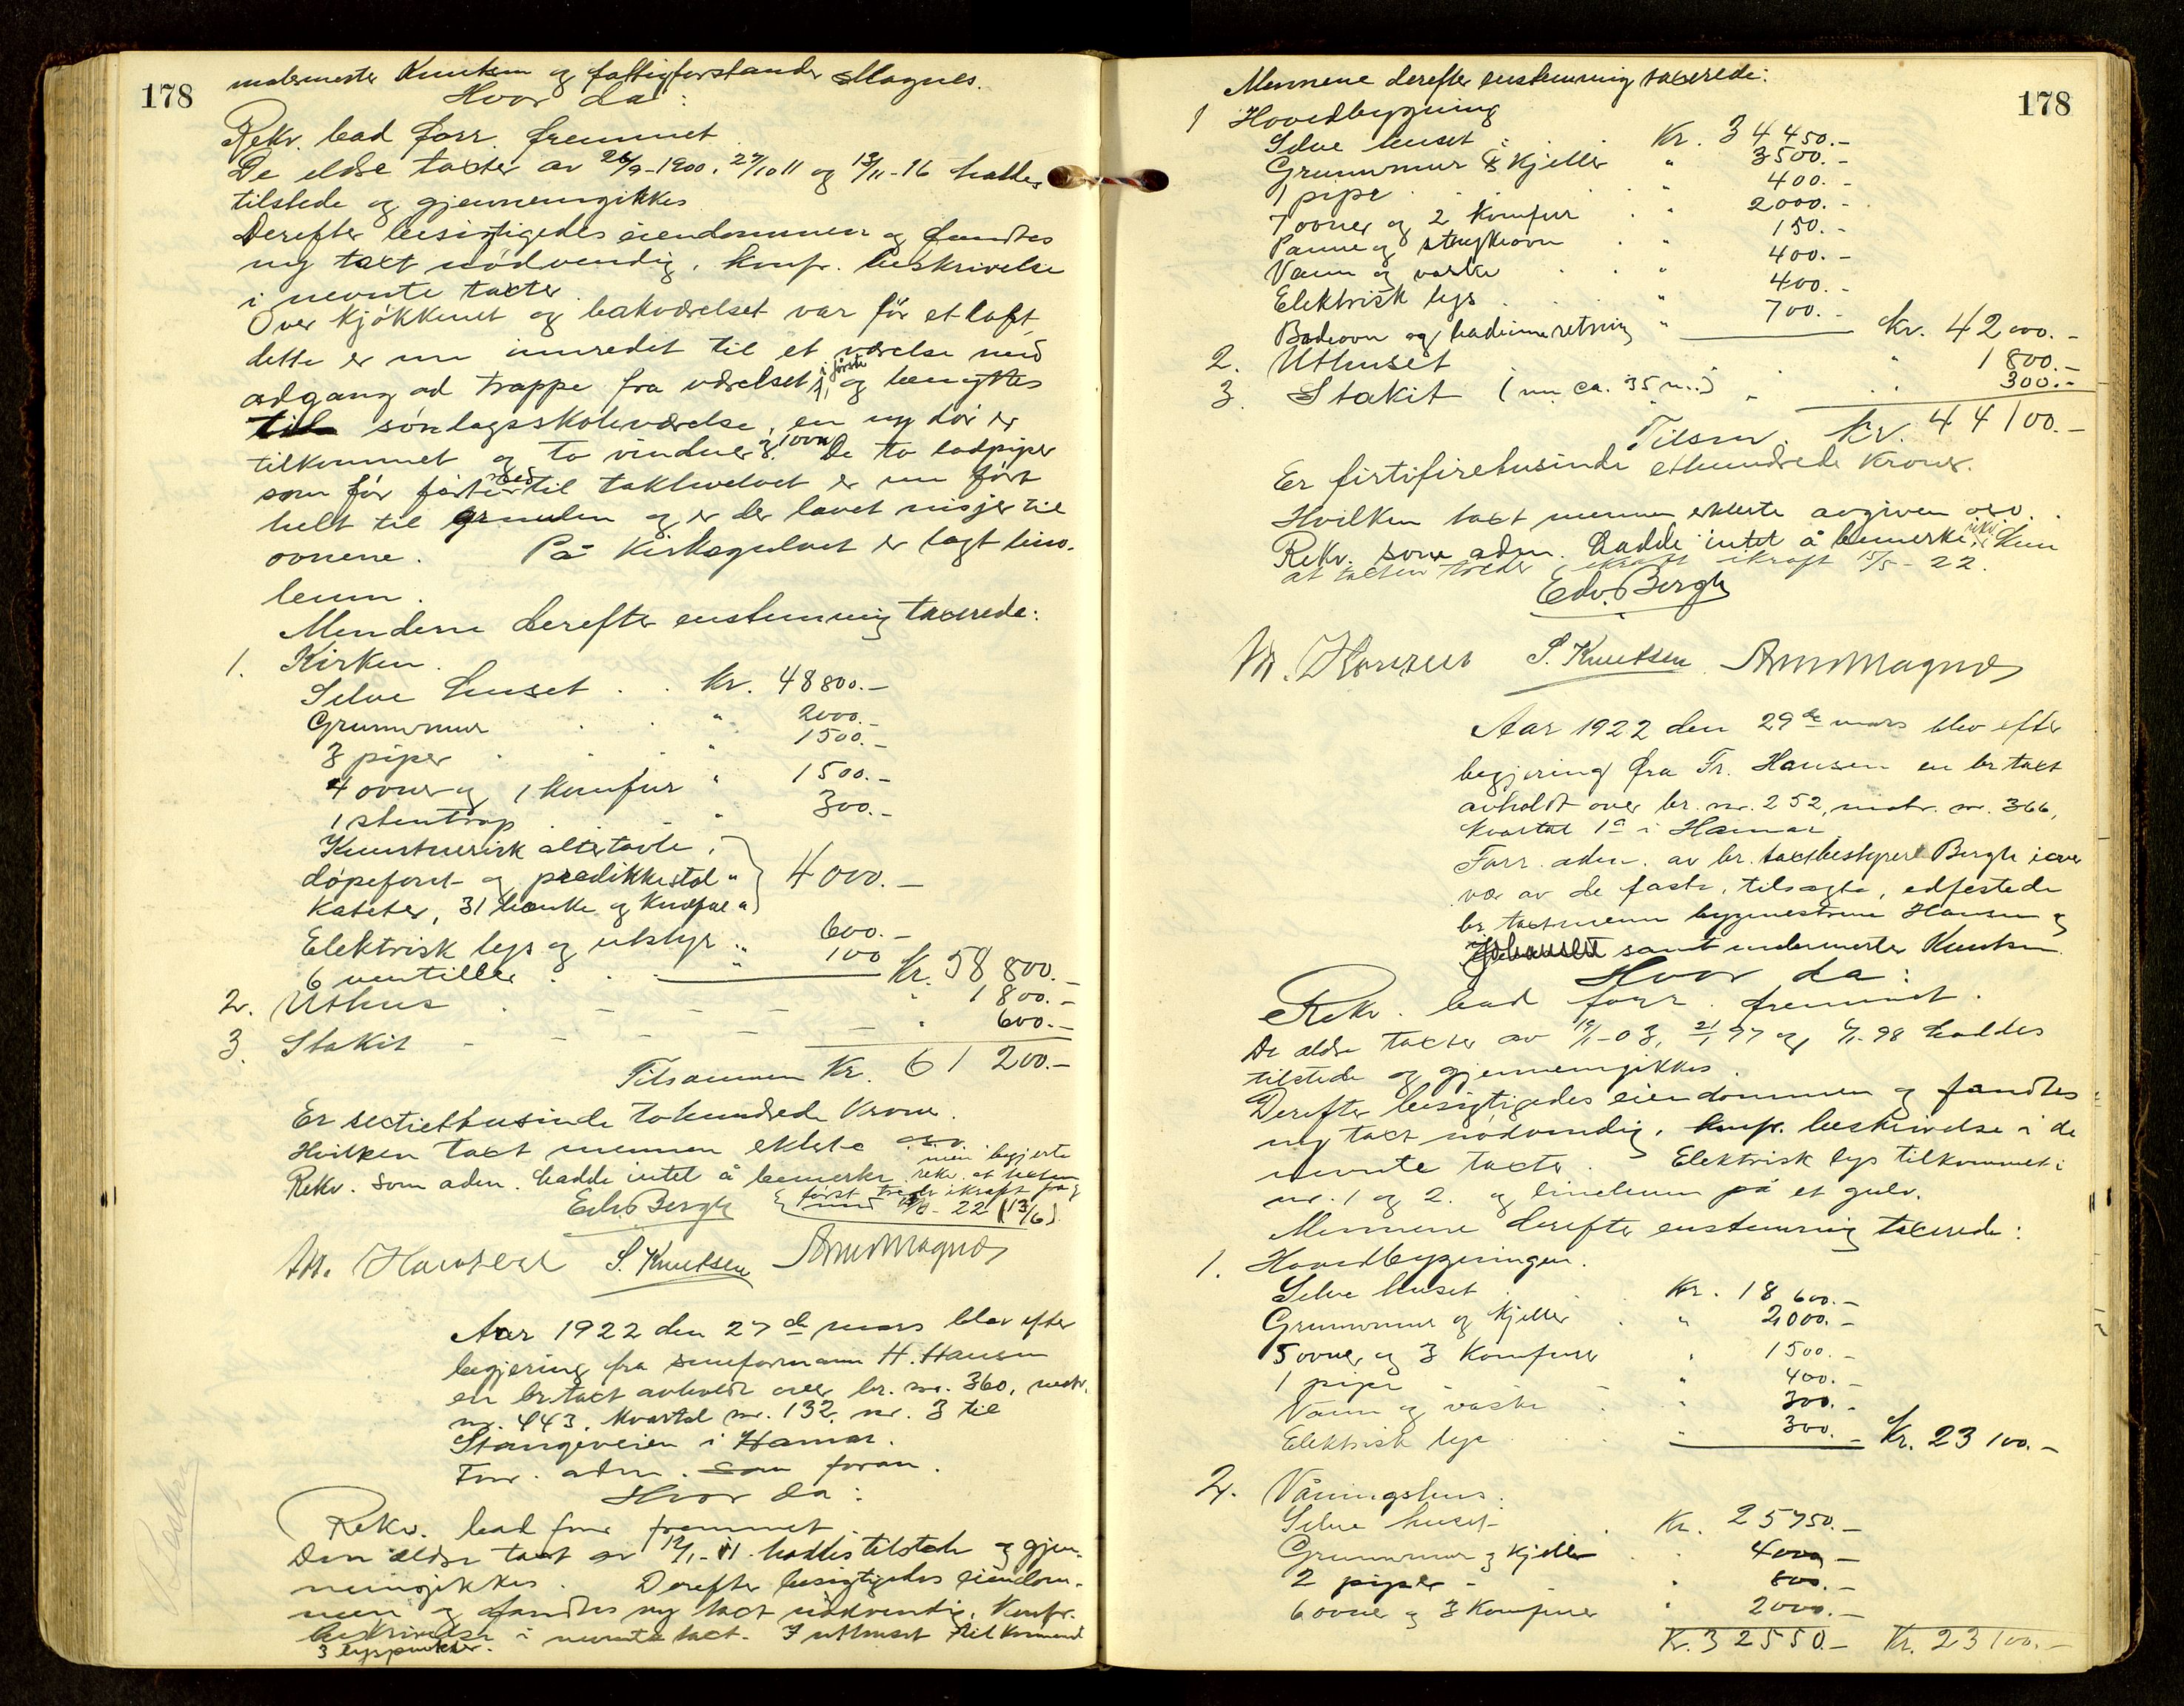 178
malermester Knutsen og fattigforstander Magnes.
Hvor da:
Rekv. bad forr. fremmet
De eldre taxter av 26/9-1900, 27/10 11 og 13/11-16 haddes
tilstede og gjennemgikkes
Derefter besigtigedes eiendommen og fandtes
ny taxt nödvendig, konfr. beskrivelse
i nevnte taxter.
Over kjøkkenet og bakværelset var før et loft,
dette er nu innredet til et værelse med
adgang ad trappe fra værelset i første og benyttes
til söndagsskoleværelse, en ny dör er
tilkommet og to vinduer og 1 ovn. De to lodpiper
som før förtes ned til takhvelvet er nu ført
helt til grunden og er der lavet nisjer til
ovnene. På Kirkegulvet er lagt lino-
leum.
Mendene derefter enstemmig taxerede:
1. Kirken.
Selve huset . . Kr. 48800.-
Grunnmur . . " 2000.-
3 piper . . " 1500.-
4 ovner og 1 komfur " 1500.-
1 stentrap . . " 300.-
Kunstnerisk altertavle,
döpefont- og prædikkestol "
Kateter, 31 bænke og Knæfal " } 4000.-
Elektrisk lys og utstyr " 600.-
6 ventiller . . " 100 Kr. 58 800.-
2. Uthus . " 1 800.-
3. Stakit - - " 600.-
Tilsammen Kr. 61 200.-
Er sextiettusinde tohundrede Kroner.
Hvilken taxt mennen erklærte osv.
Rekv. som adm. hadde intet å bemerke men begjerte
rekv. at taxten
først træder ikraft fra
22 (13/6)
Edv. Bergh
M. Hansen S. Knutsen Arne Magnes
Aar 1922 den 27de mars blev efter
begjering fra H. Hansen
en br. taxt avholdt over br. nr. 360, matr.
nr. 443, Kvartal nr. 132, nr. 3 til
Stangeveien i Hamar.
Forr. adm. som foran.
Hvor da:
Rekv. bad forr fremmet
Den ældre taxt av 12/1-11 haddes tilstede og gjen-
nemgikkes. Derefter besigtigedes eiendom-
men og fandtes ny taxt nödvendig, Konfr.
beskrivelse i nevnte taxt. I uthuset tilkommet
3 lyspunkter.
178
Mennene derefter enstemmig taxerede:
1 Hovedbygning
Selve huset . Kr. 34 450.-
Grunnmur & Kjeller " 3500.-
1 pipe . . " 400.-
7 ovner og 2 Komfur . " 2000.-
Panne og strykeovn . " 150.-
Vann og vaske . . " 400.-
Elektrisk lys . . " 400.-
Badeovn og badeinnretning " 700.- Kr. 42 000.-
2. Uthuset " 1 800.-
3. Stakit (nu ca. 35 m.) " 300.-
Tilsm. Kr. 44100.-
Er firtifiretusinde ethundrede Kroner.
Hvilken taxt mennen erklærte avgiven osv.
Rekv. som adm. hadde intet å bemerke, kun
at taxten træder ikraft 15/5-22.
Edv. Bergh
M. Hansen S. Knutsen Arne Magnes
Aar 1922 den 29de mars blev efter
begjering fra Fr. Hansen en br taxt
avholdt over br. nr. 252, matr. nr. 366,
Kvartal 1a i Hamar
Forr. adm. av br. taxtbestyrer Bergh i over
vær av de faste, tilsagte, edfestede
br. taxtmenn bygmestrene Hansen og
Johansen samt malermester Knutsen
Hvor da:
Rekv. bad forr. fremmet.
De ældre taxter av 19/1-03, 21/1 97 og 6/1-98 haddes
tilstede og gjennemgikkes.
Derefter besigtigedes eiendommen og fandtes
ny taxt nödvendig, konfr. beskrivelse i de
nevnte taxter. Elektrisk lys tilkommet i
nr. 1 og 2. og linoleum på et gulv.
Mennene derefter enstemmig taxerede:
1. Hovedbygningen.
Selve huset . Kr. 18 600.-
Grunnmur og Kjeller . " 2000.-
5 ovner og 3 Komfurer " 1500.-
1 pipe - - " 400.-
Vann og vaske . " 300.-
Elektrisk lys . . " 300.- Kr. 23 100.-
2. Våningshus.
Selve huset- . Kr. 25750.-
Grunnmur og Kjeller . " 4000.-
2 piper - " 800.-
6 ovner og 3 Komfurer " 2000.-
Kr. 32550.- Kr. 23100.-